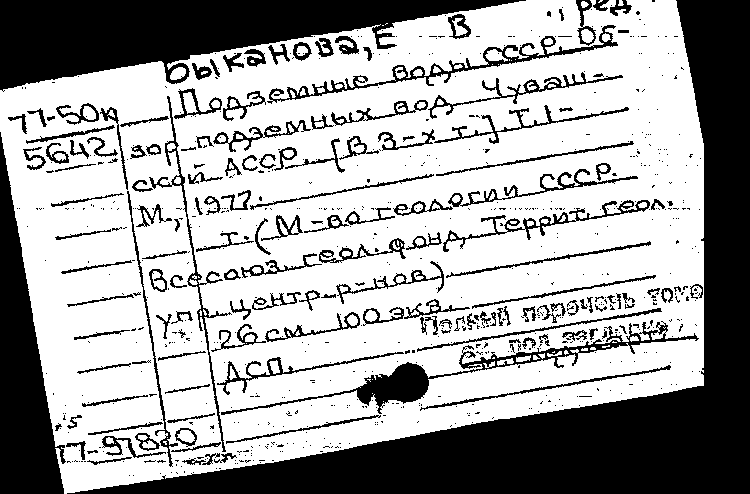 Быканова, Е В ., ред.
77-50к Подземные воды СССР. Об-
5642 зор подземных вод Чуваш-
ской АССР. [В 3-х т.]. Т.1-
М., 1977.
т. (М-во геологии СССР.
Всесоюз. геол. фонд. Террит. геол.
упр. центр. р-нов)
26 см. 100 экз.
Полный перечень томо
ДСП.
см. под заглавием
См. след. карт.
77-97820